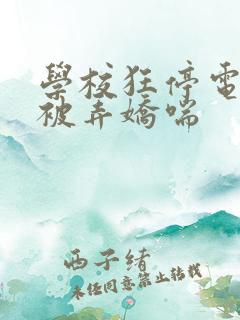 學校狂停電
被弄嬌喘
西子緒
未經同意禁止轉載